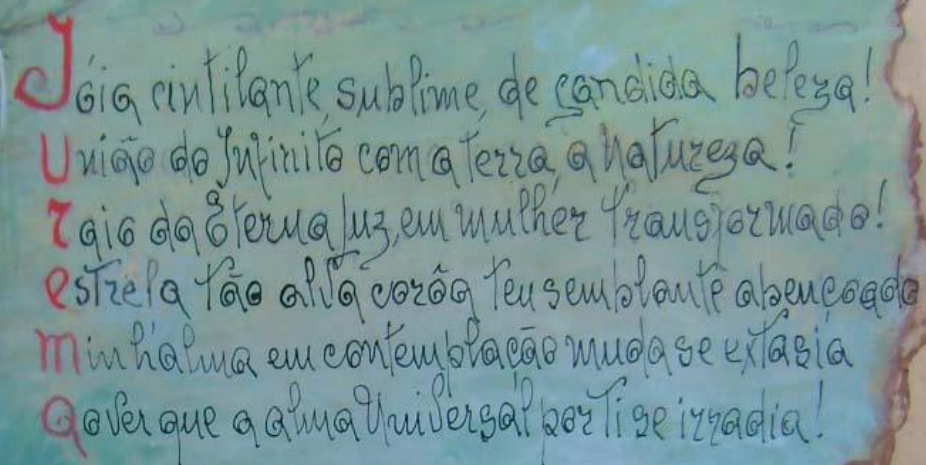 Jóia cintilante, sublime, de candida beleza!
União do Infinito com a terra, a Natureza!
raio da Eterna luz, em mulher transformado!
estrela tão alva corôa teu semblante abençoado
minhalma em contemplação muda se extasía
ao ver que a alma Universal por ti se irradia!